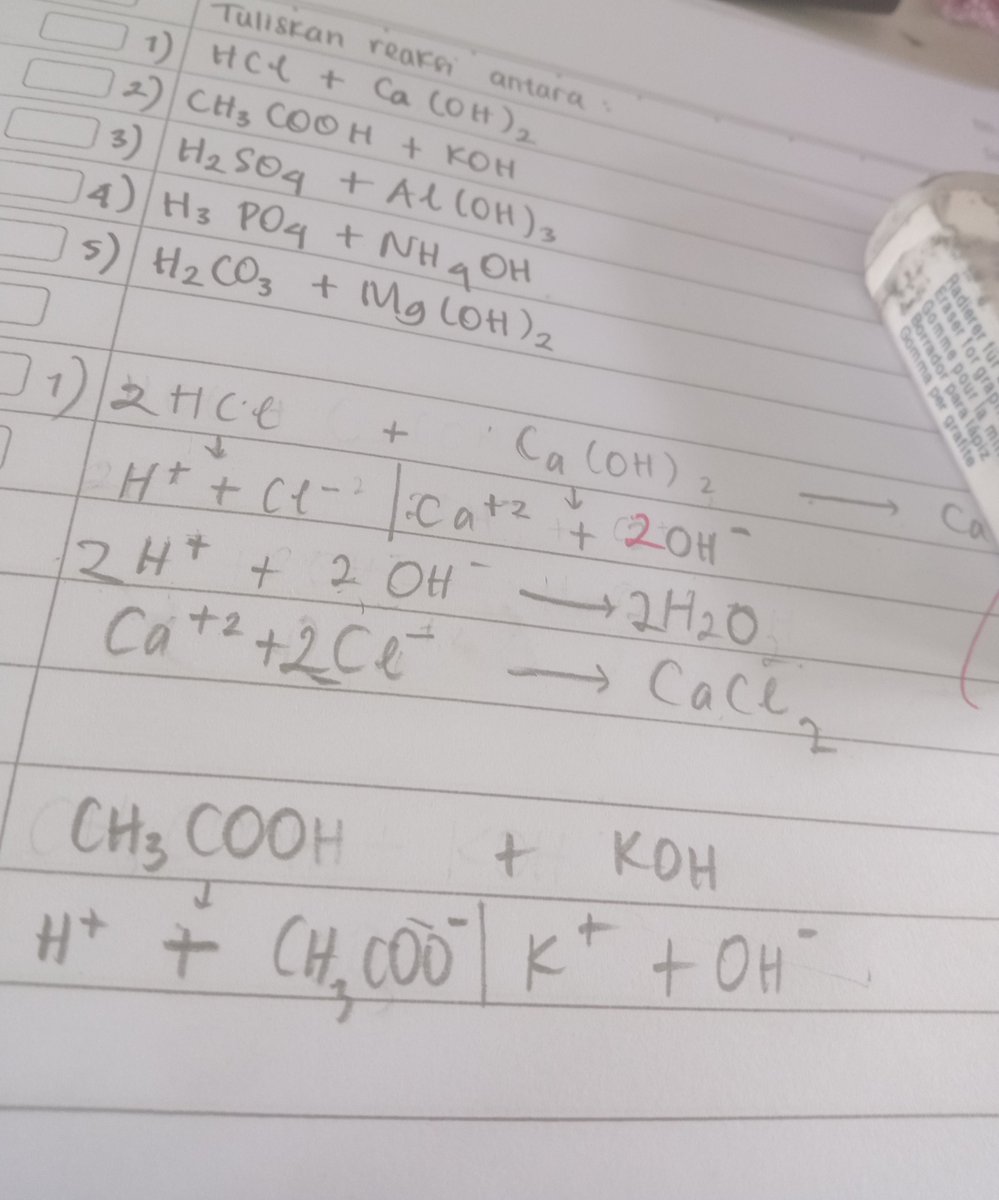 Tuliskan reaksi antara :
1) HCl + Ca(OH)2
2) CH3COOH + KOH
3) H2SO4 + Al(OH)3
4) H3PO4 + NH4OH
5) H2CO3 + Mg(OH)2
1) 2HCl + Ca(OH)2 → Ca
↓ ↓
H+ + Cl- | Ca+2 + 2OH-
2H+ + 2OH- → 2H2O
Ca+2 + 2Cl- → CaCl2
CH3COOH + KOH
↓
H+ + CH3COO- | K+ + OH-
Radierer für
Eraser for grap
Gomme pour la m
Borrador para lápiz
Gomma per grafite